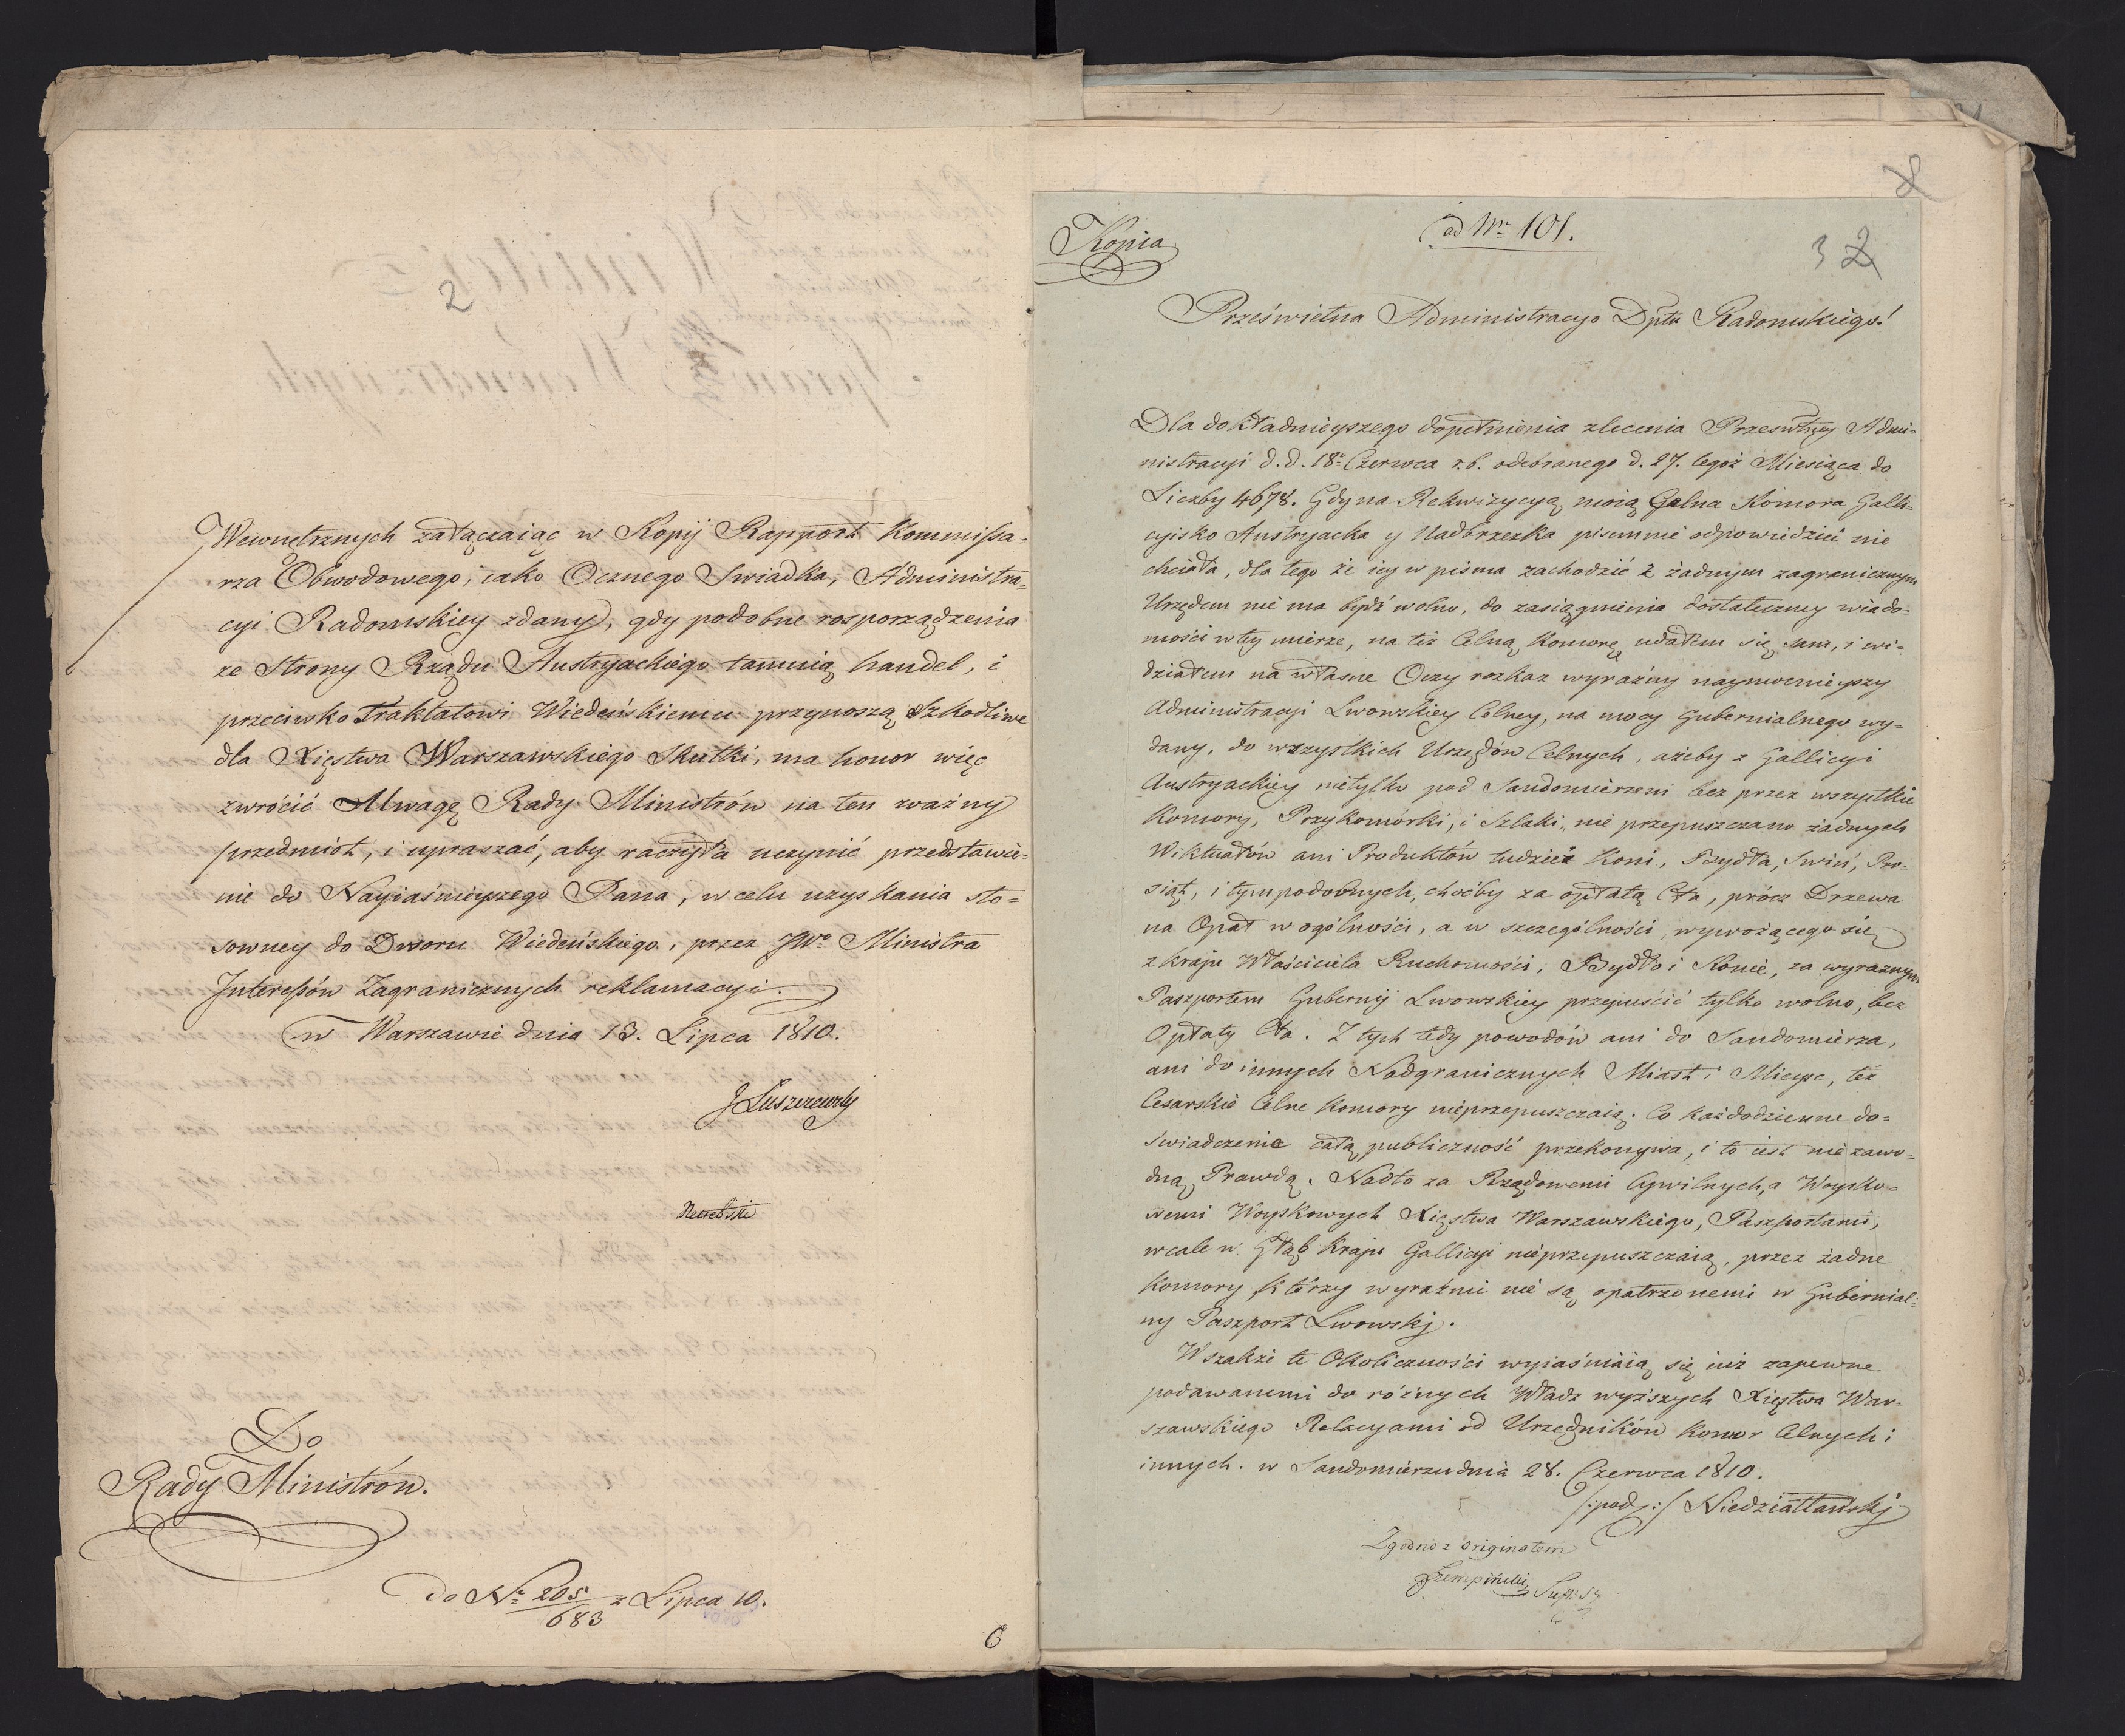 2
Wewnętrznych załączaiąc w Kopij Rapport Kommissa-
rza Obwodowego, iako Ocznego Swiadka, Administra-
cyi Radomskiey zdany, gdy podobne rozporządzenia
ze Strony Rządu Austryackiego tamuią handel, i
przeciwko Traktatowi Wiedeńskiemu przynoszą Szkodliwe
dla Xięstwa Warszawskiego Skutki, ma honor więc
zwrócić Uwagę Rady Ministrów na ten ważny
przedmiot, i upraszać, aby raczyła uczynić przedstawie-
nie do Nayiaśnieyszego Pana, w celu uzyskania sto-
sowney do Dworu Wiedeńskiego, przez JWo Ministra
Interessów Zagranicznych reklamacyi.
w Warszawie dnia 13. Lipca 1810.
J Łuszczewsky
Do
Rady Ministrów.
do Nr 205/683 z Lipca 10.
6
8
Kopia
ad Nr 101.
3 2
Prześwietna Administracyo Dptu Radomskiego!
Dla dokładnieyszego dopełnienia zlecenia Przeswtney Admi-
nistracyi d.d. 18o Czerwca r.b. odebranego d. 27. tegoż Miesiąca do
Liczby 4678. Gdy na Rekwizycyą moią Celna Komora Galli-
cyisko Austryacka y Nadbrzezka pisemnie odpowiedzieć nie
chciała, dla tego że iey w pisma zachodzić z żadnym zagranicznym
Urzędem nie ma bydź wolno, do zasiągnienia dostateczney wiado-
mości w tey mierze, na też Celną Komorę udałem się sam, i wi-
działem na własne Oczy rozkaz wyraźny naymocnieyszy
Administracyi Lwowskiey Celney, na mocy Gubernialnego wy-
dany, do wszystkich Urzędów Celnych, ażeby z Gallicyi
Austryackiey nietylko pod Sandomierzem lecz przez wszystkie
Komory, Przykomórki, i Szlaki, nie przepuszczano żadnych
Wiktuałów ani Produktów tudzież Koni, Bydła, Swiń, Pro-
siąt, i tym podobnych, choćby za opłatą Cła, prócz Drzewa
na Opał w ogólności, a w szczególności wywożącego się
z kraju Właściciela Ruchomości, Bydło i Konie, za wyraznym
Paszportem Gubernij Lwowskiey przepuścić tylko wolno, bez
Opłaty Cła. Z tych tedy powodów ani do Sandomierza,
ani do innych Nadgranicznych Miast i Mieysc, też
Cesarskie Celne Komory nieprzepuszczaią. Co każdodzienne do-
świadczenie całą publiczność przekonywa, i to iest niezawo-
dną Prawdą. Nadto za Rządowemi Cywilnych, a Woysko-
wemi Woyskowych Xięstwa Warszawskiego, Paszportami,
wcale w Głąb Kraju Gallicyi nieprzepuszczaią, przez żadne
Komory, Którzy wyraźnie nie są opatrzonemi w Gubernial-
ny Paszport Lwowskj.
Wszakże te Okoliczności wyiaśniaią się iuż zapewne
podawanemi do różnych Władz wyższych Xięstwa War-
szawskiego Relacyami od Urzędników Komor Celnych i
innych. w Sandomierzu dnia 28. Czerwca 1810.
/:podp:/ Niedziałławskj
Zgodno z originałem